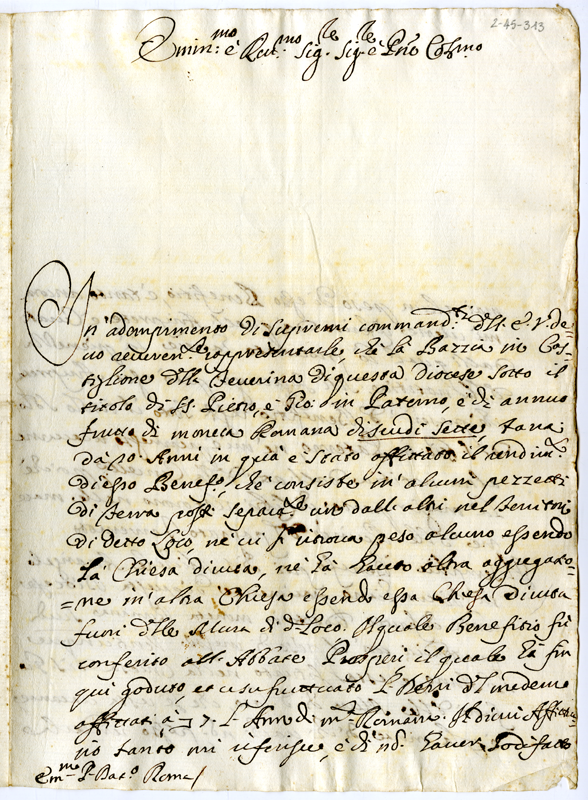 2-45-313
Emin:mo e Reu:mo Sig.re Sig.re e Prõ Col:mo
In adempimento di supremi command:ti dell' E. V. de=
uo reueren:te rappresentarle, che la Bazzia in Cas=
tiglione dell Teuerina di questa diocese sotto il
titolo di SS. Pietro, e Pio in Paterno, è di annuo
frutto di moneta Romana di scudi sette, tana
da 20 Anni in qua è stato affittato il rendim:to
di esso Benef:o, che consiste in alcuni pezzetti
di terra posti separat:te uno dall altri nel territorio
di detto Loco, ne ui si ritroua peso alcuno essendo
la Chiesa diruta, ne hà hauuto altra aggregatio=
=ne in altra Chiesa essendo essa Chiesa diruta
fuori delle Mura di d:o Loco. Il quale Benefitio fù
conferito all' Abbate Prosperi il quale hà fin
qui goduto et usufruttuato l' Beni del medemo
affittati à 7. l' Anno di m:ta Romana. Il di cui Affittua=
rio tanto mi riferisce, e di nõ hauer sodisfatto
E:mo P:e Bar:o Roma/